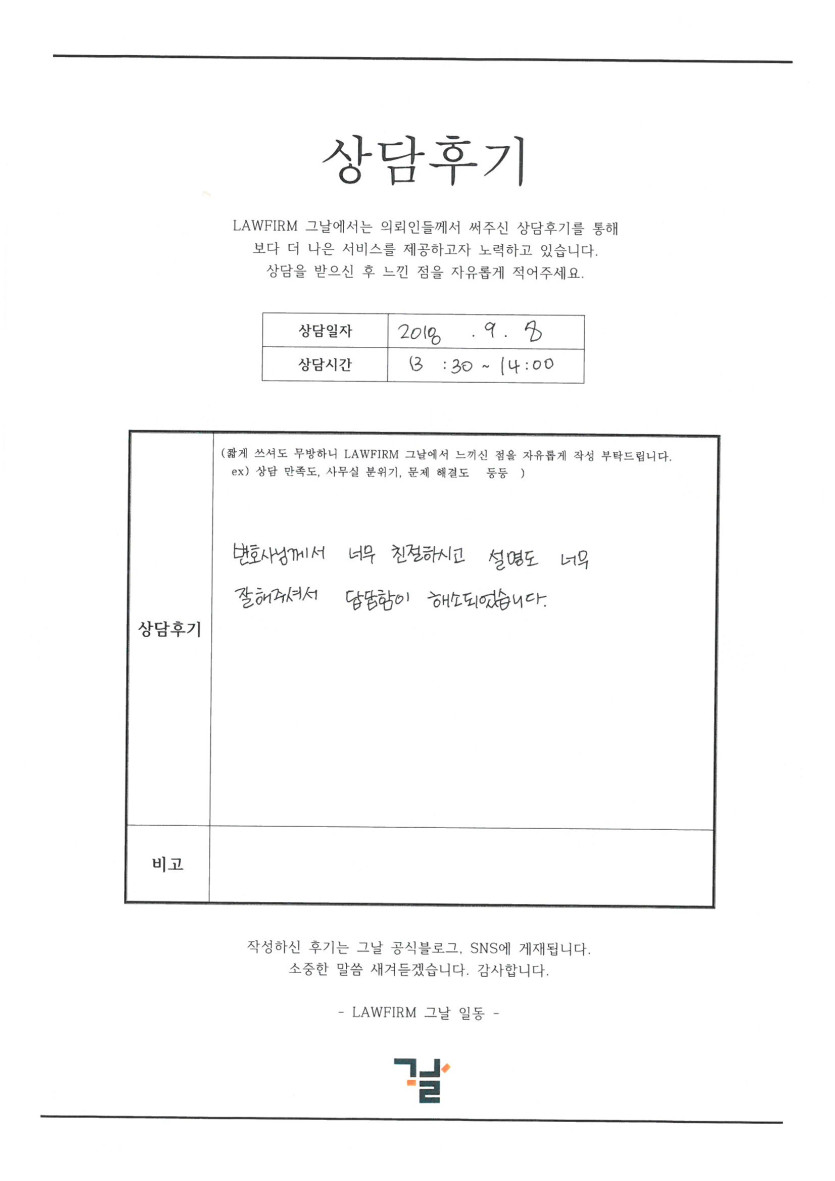 상담후기
LAWFIRM 그날에서는 의뢰인들께서 써주신 상담후기를 통해
보다 더 나은 서비스를 제공하고자 노력하고 있습니다.
상담을 받으신 후 느낀 점을 자유롭게 적어주세요.
상담일자 2018 . 9 . 8
상담시간 13 : 30 ~ 14 : 00
(짧게 쓰셔도 무방하니 LAWFIRM 그날에서 느끼신 점을 자유롭게 작성 부탁드립니다.
ex) 상담 만족도, 사무실 분위기, 문제 해결도 등등 )
변호사님께서 너무 친절하시고 설명도 너무
잘해주셔서 답답함이 해소되었습니다.
상담후기
비고
작성하신 후기는 그날 공식블로그, SNS에 게재됩니다.
소중한 말씀 새겨듣겠습니다. 감사합니다.
- LAWFIRM 그날 일동 -
그날